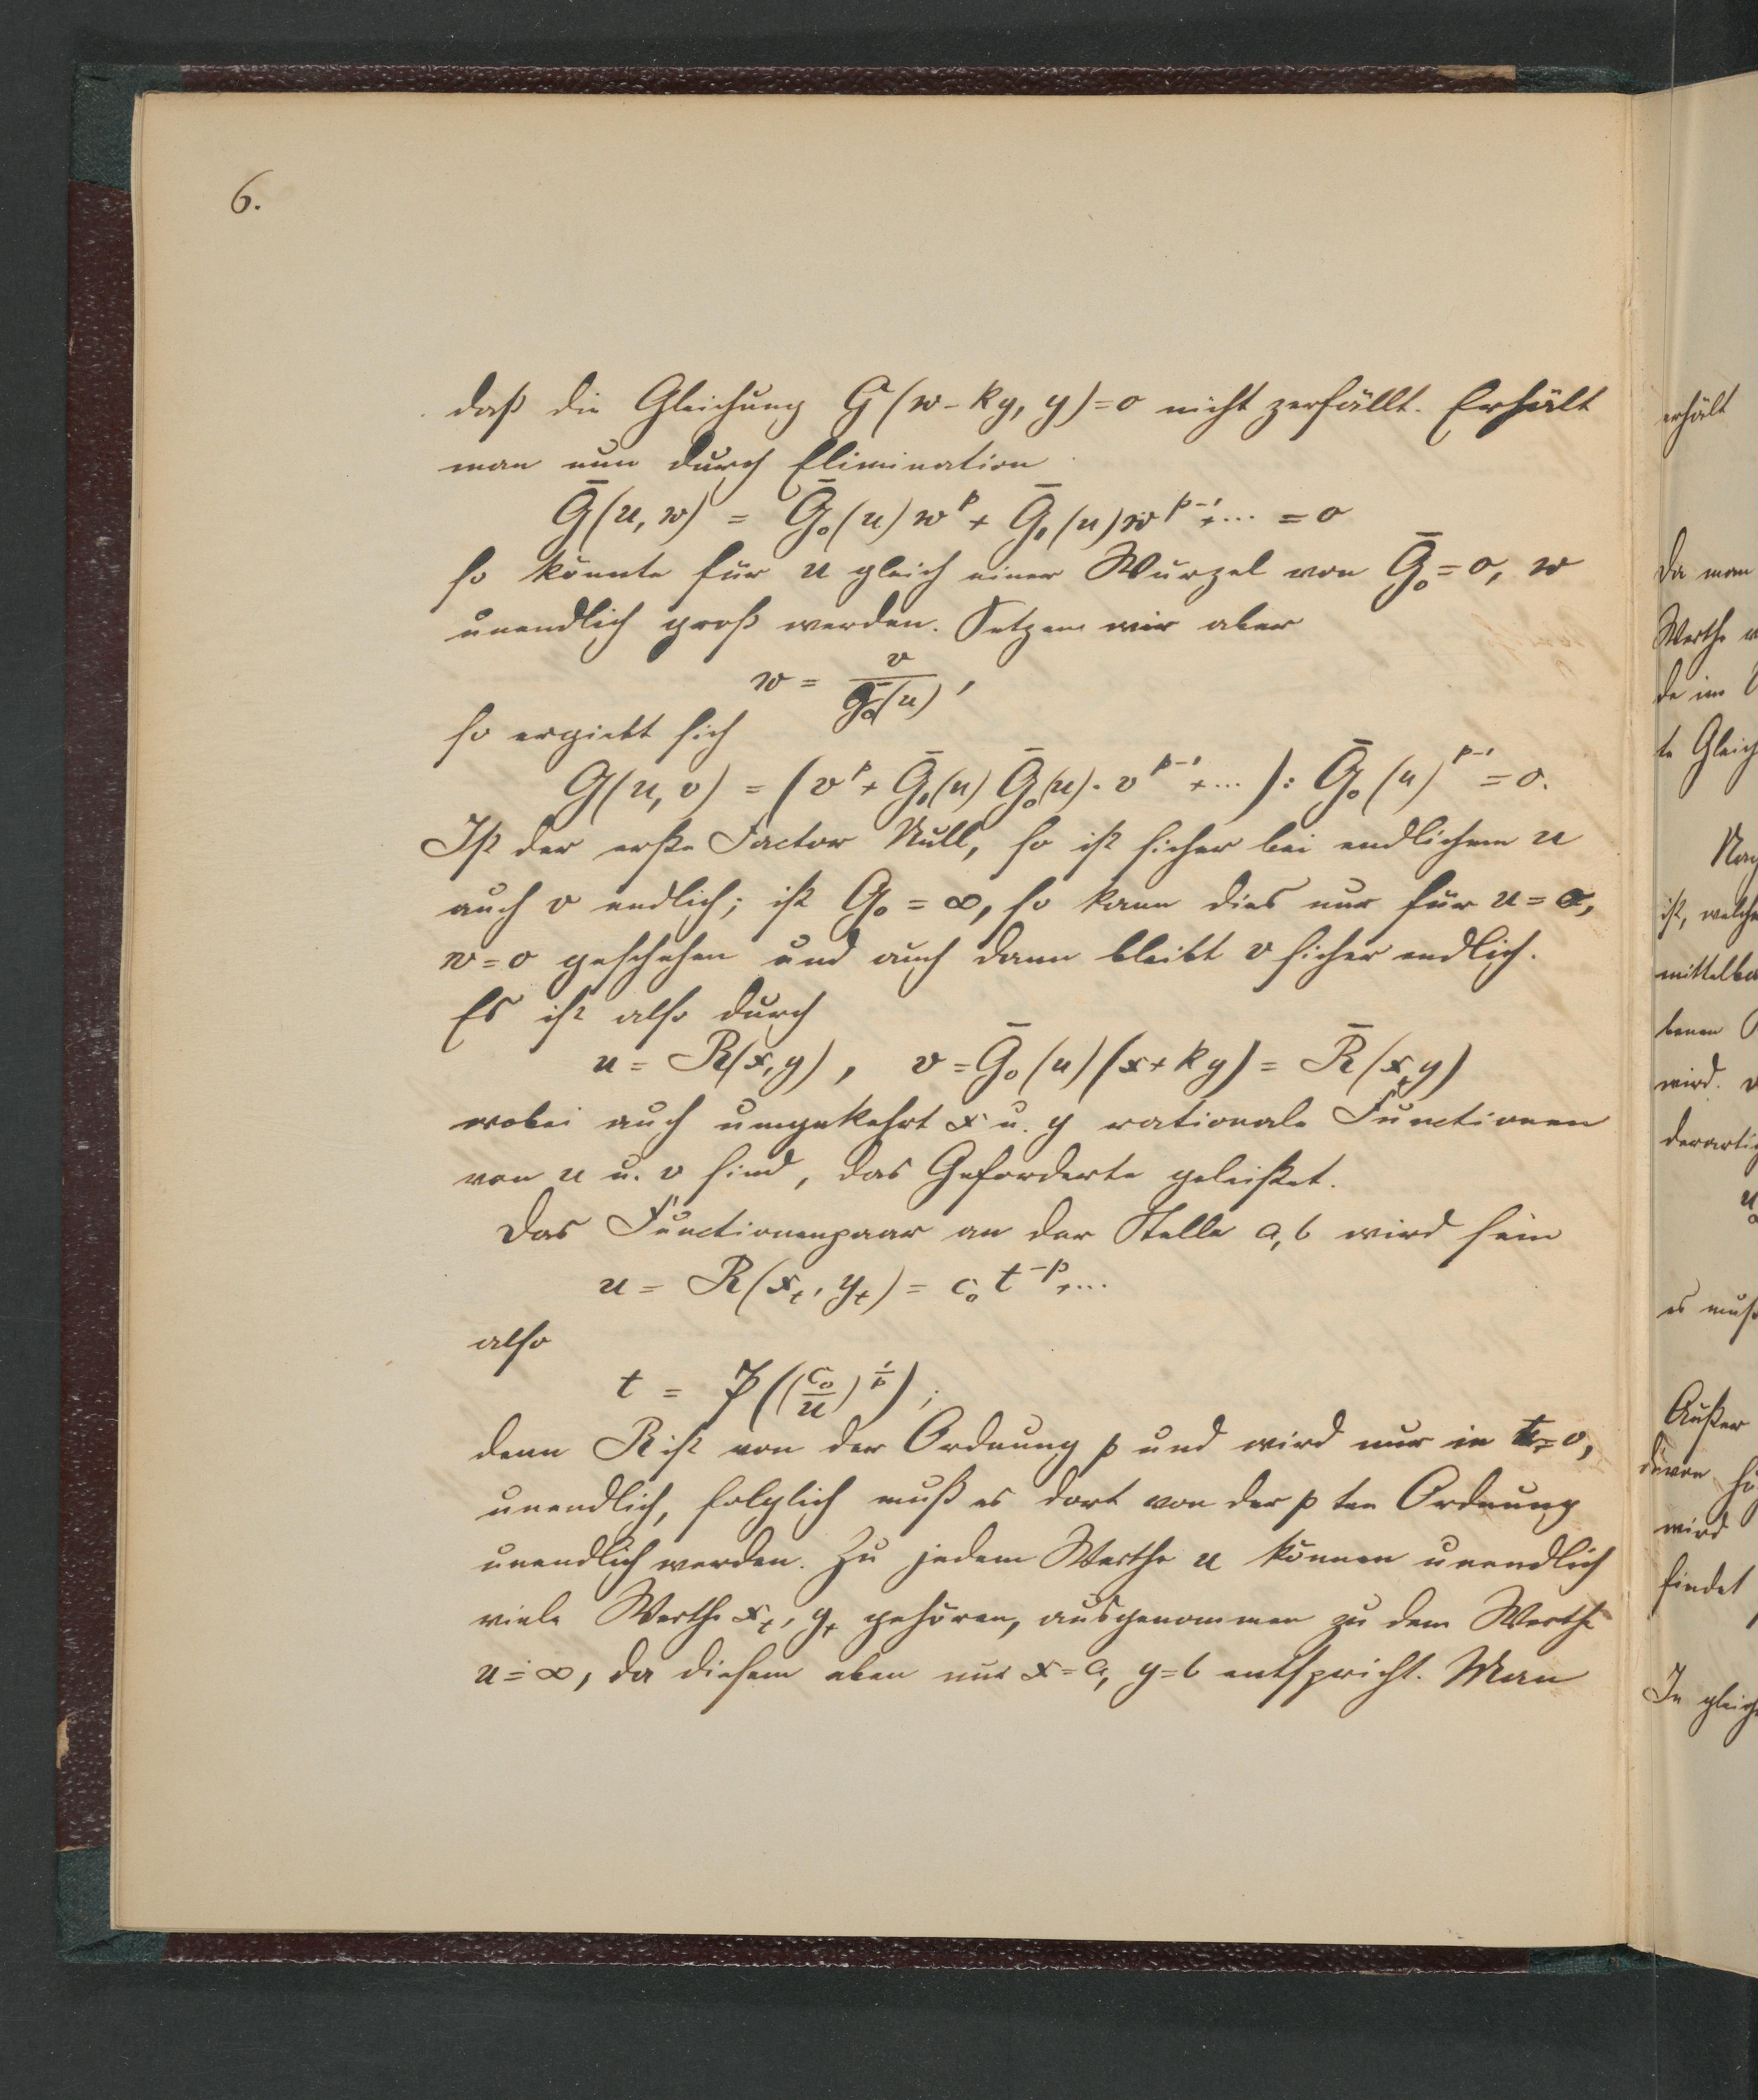 6.
daß die Gleichung G(w-ky, y)=0 nicht zerfällt. Erhält
man nun durch Elimination
Ḡ(u, w) = Ḡ₀(u) w^p + Ḡ₁(u) w^{p-1} + ... = 0
so könnte für u gleich einer Wurzel von Ḡ₀ = 0, w
unendlich groß werden. Setzen wir aber
w = v / Ḡ₀(u) ,
so ergiebt sich
G(u, v) = (v^p + Ḡ₁(u) Ḡ₀(u) · v^{p-1} + ... ) : Ḡ₀(u)^{p-1} = 0.
Ist der erste Factor Null, so ist sicher bei endlichem u
auch v endlich; ist G₀ = ∞, so kann dies nur für u = ∞,
w = 0 geschehen und auch dann bleibt v sicher endlich.
Es ist also durch
u = R(x, y) , v = Ḡ₀(u) (x + ky) = R̄(x, y)
wobei auch umgekehrt x u. y rationale Functionen
von u u. v sind, das Geforderte geleistet.
Das Functionenpaar an der Stelle a, b wird sein
u = R(x_t, y_t) = c₀ t^{-p} + ...
also
t = 𝔓((c₀/u)^{1/p}) ;
denn R ist von der Ordnung p und wird nur in t = 0,
unendlich, folglich muß es dort von der p ten Ordnung
unendlich werden. Zu jedem Werthe u können unendlich
viele Werthe x_t, y_t gehören, ausgenommen zu dem Werthe
u = ∞, da diesem eben nur x = a, y = b entspricht. Man
erhält
Da man
Werthe
de im
te Gleich
ist, welche
mittelba
benen
wird.
derartig
es muß
Außer
wird
findet
In gleich